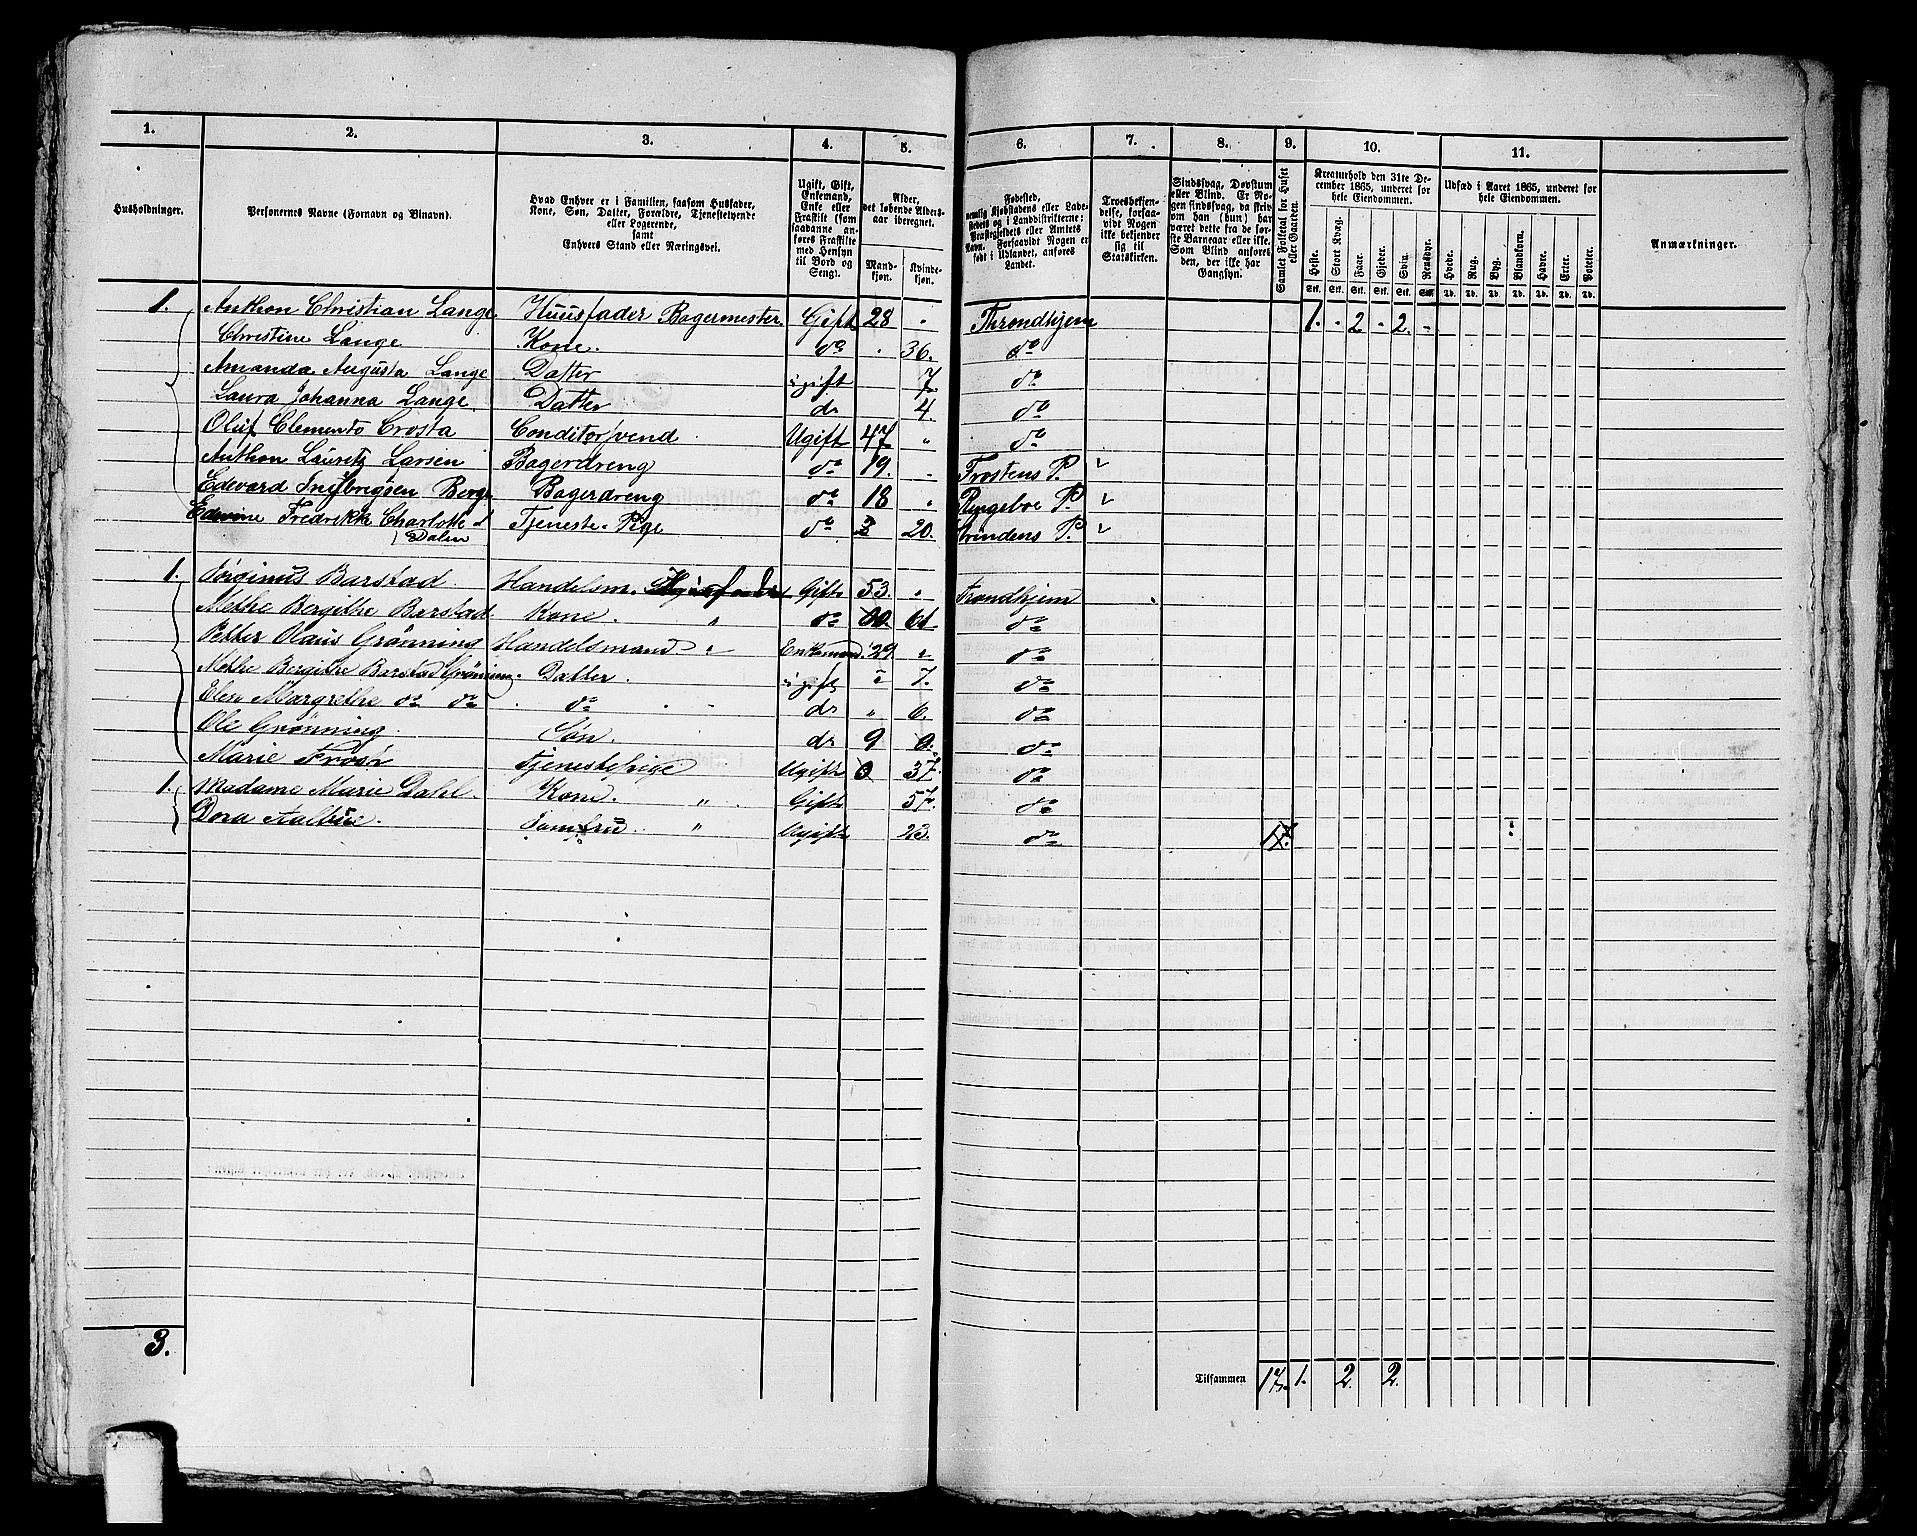 1. 2. 3. 4. 5. 6. 7. 8. 9. 10. 11.
Husholdninger.
Personernes Navne (Fornavn og Binavn).
Hvad Enhver er i Familien, saasom Husfader,
Kone, Søn, Datter, Forældre, Tjenestetyende
eller Logerende,
samt
Enhvers Stand eller Næringsvei.
Ugift, Gift,
Enkemand,
Enke eller
Fraskilt (som
saadanne an-
føres Fraskilte
med Hensyn
til Bord og
Seng).
Alder,
det løbende Alders-
aar iberegnet.
Mand-
kjøn.
Kvinde-
kjøn.
Fødested,
nemlig Kjøbstadens eller Lade-
stedets og i Landdistrikterne:
Præstegjeldets eller Amtets
Navn. Forsaavidt Nogen er
født i Udlandet, anføres
Landet.
Troesbekjen-
delse, forsaa-
vidt Nogen
ikke bekjender
sig til
Statskirken.
Sindssvag, Døvstum
eller Blind. Er No-
gen sindssvag, da skriv
om han (hun) har
været dette fra de før-
ste Barneaar eller ikke.
Som Blind anføres
den, der ikke har
Gangsyn.
Samlet Folketal for Huset
eller Gaarden.
Kreaturhold den 31te De-
cember 1865, underet for
hele Eiendommen.
Heste. Stort Kvæg. Faar. Gjeder. Svin. Rensdyr.
Stk. Stk. Stk. Stk. Stk. Stk.
Udsæd i Aaret 1865, underet for
hele Eiendommen.
Hvede. Rug. Byg. Blandkorn. Havre. Erter. Poteter.
Td. Td. Td. Td. Td. Td. Td.
Anmærkninger.
1. Anthon Christian Lange Huusfader Bagermester Gift 28 " Throndhjem 1. - 2 - 2. -
Christine Lange Kone. do . 36. do
Amanda Augusta Lange Datter ugift 7 do
Laura Johanna Lange. Datter do 4. do
Oluf Clemento Crosta Conditorsvend Ugift 47 " do
Anthon Lauretz Larsen Bagerdreng do 19. . Frostens P.
Edevard Ingbrigsen Berge Bagerdreng do 18 " Ringeboe P.
Edevine Fredrikke Charlotte Tjeneste Pige do 20. Strindens P.
Dalen
1. Jørginus Barstad. Handelsm. Gift 53. " Trondhjem
Methe Bergithe Barstad Kone. " do 61 do
Petter Olaus Grønning Handelsmand " Enkemand. 29 " do
Methe Bergithe Barstad Grønning. Datter. ugift 7. do
Elen Margrethe do do do do " 6. do
Ole Grønning. Søn. do 9 0. do
Marie Frosø Tjenestepige Ugift 0 37. do
1. Madame Marie Dahl. Kone. " Gift 57. do
Dora Aalbue. Jomfru. " Ugift 23. do 17.
3.
Tilsammen 17. 1. 2. 2.